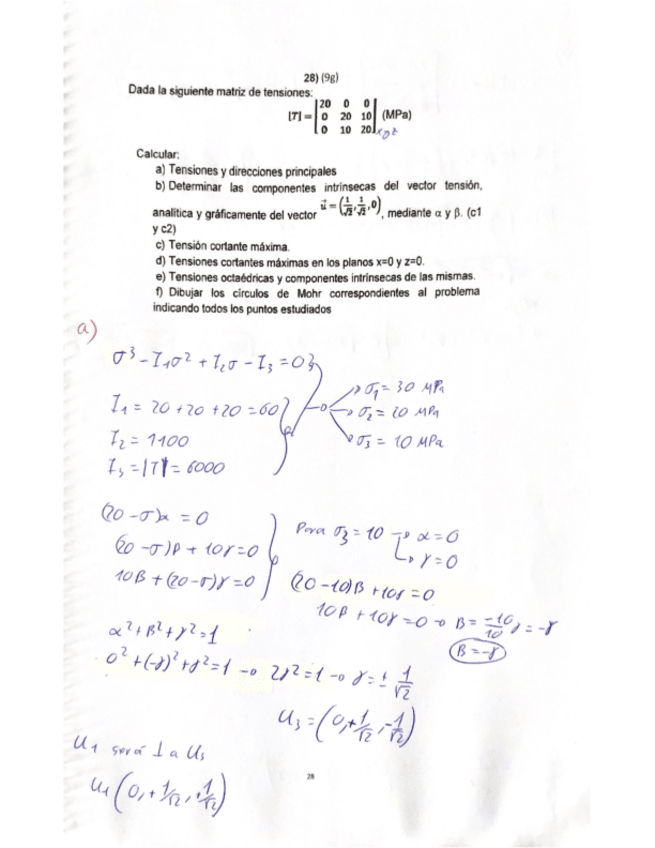 28) (9g)
Dada la siguiente matriz de tensiones:
|T| = |20 0 0|
|0 20 10| (MPa)
|0 10 20|
Calcular:
a) Tensiones y direcciones principales
b) Determinar las componentes intrínsecas del vector tensión,
analítica y gráficamente del vector u⃗ = (1/√2, 1/√2, 0), mediante α y β. (c1
y c2)
c) Tensión cortante máxima.
d) Tensiones cortantes máximas en los planos x=0 y z=0.
e) Tensiones octaédricas y componentes intrínsecas de las mismas.
f) Dibujar los círculos de Mohr correspondientes al problema
indicando todos los puntos estudiados
a)
σ³ - I₁σ² + I₂σ - I₃ = 0
I₁ = 20 + 20 + 20 = 60
I₂ = 1100
I₃ = |T| = 6000
σ₁ = 30 MPa
σ₂ = 20 MPa
σ₃ = 10 MPa
(20 - σ)α = 0
(20 - σ)β + 10γ = 0
10β + (20 - σ)γ = 0
Para σ₃ = 10 → α = 0
↳ γ = 0
(20 - 10)β + 10γ = 0
10β + 10γ = 0 → β = -10/10 γ = -γ
β = -γ
α² + β² + γ² = 1
0² + (-γ)² + γ² = 1 → 2γ² = 1 → γ = ± 1/√2
u₃ = (0, + 1/√2, - 1/√2)
u₁ será ⊥ a u₃
u₁ (0, + 1/√2, + 1/√2)
28